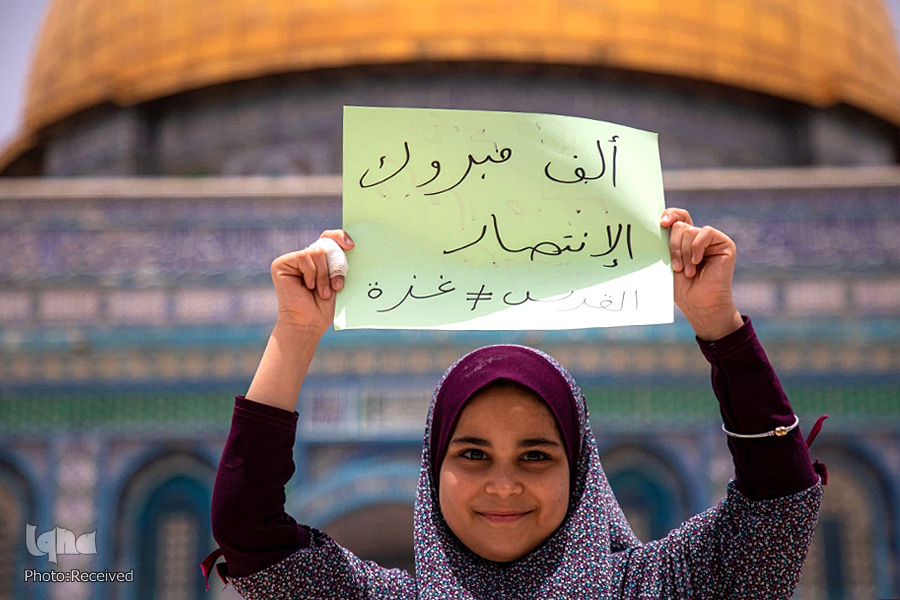 ألف مبروك
الإنتصار
القدس ≠ غزة
iqna
Photo:Received